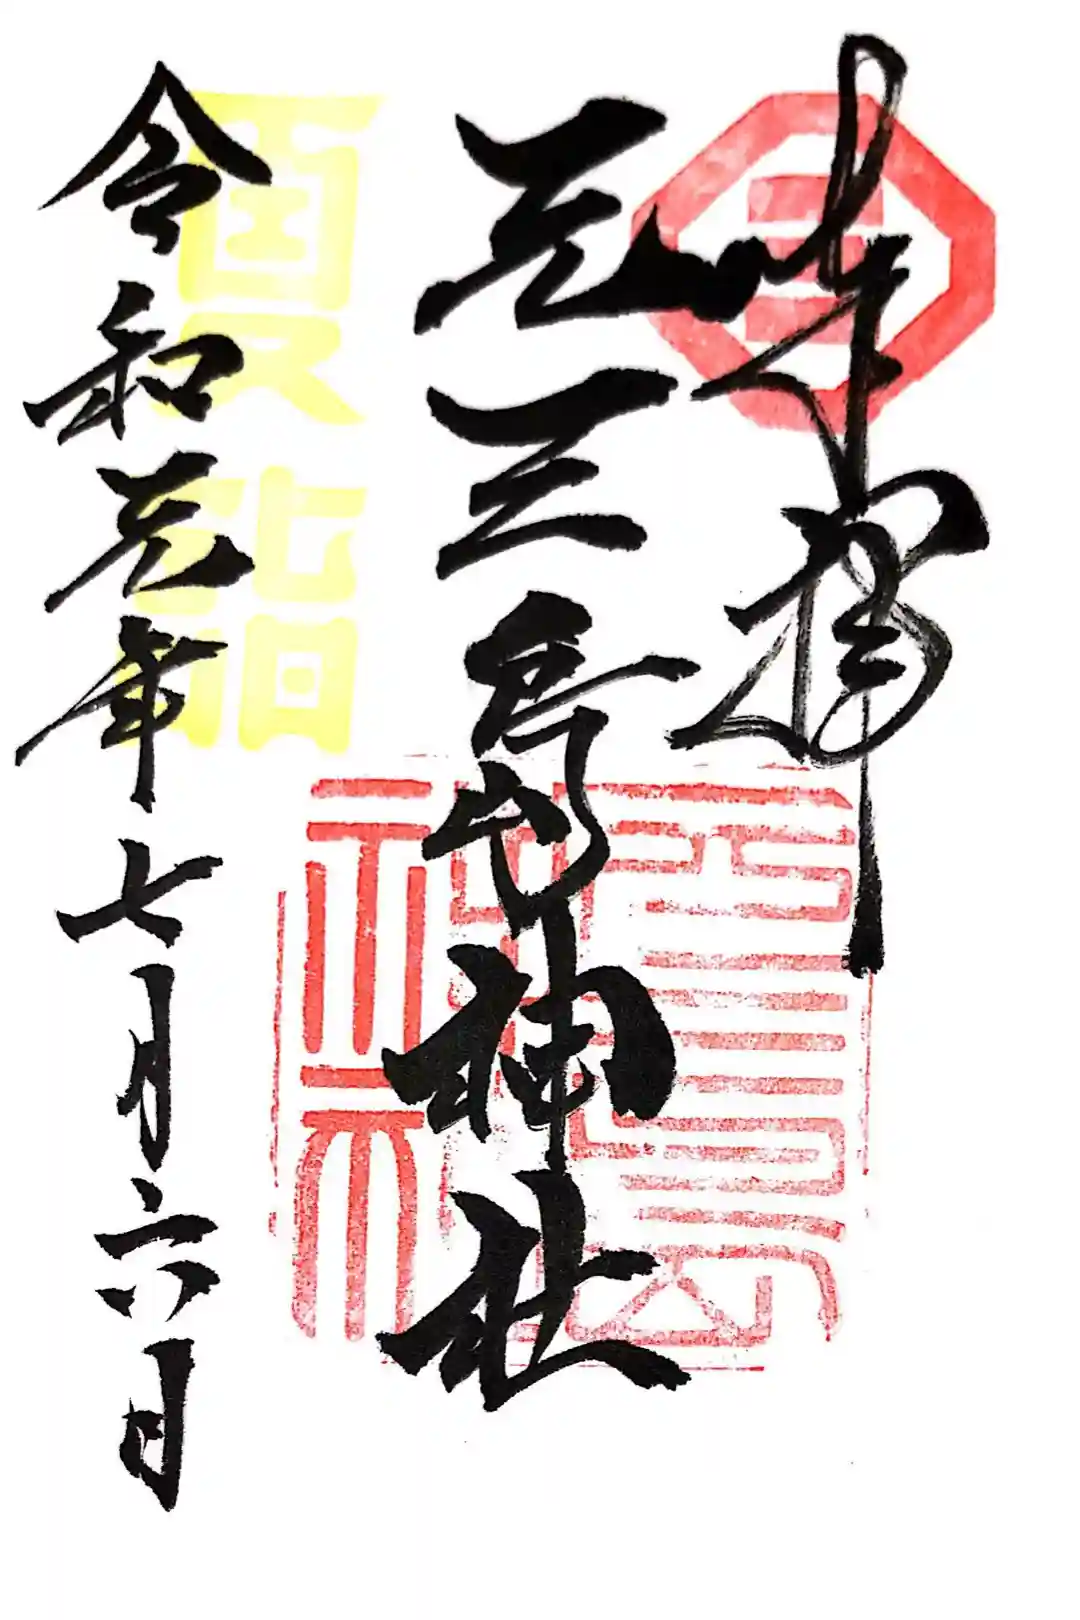 奉拝
三
元三島神社
夏詣
令和元年七月六日